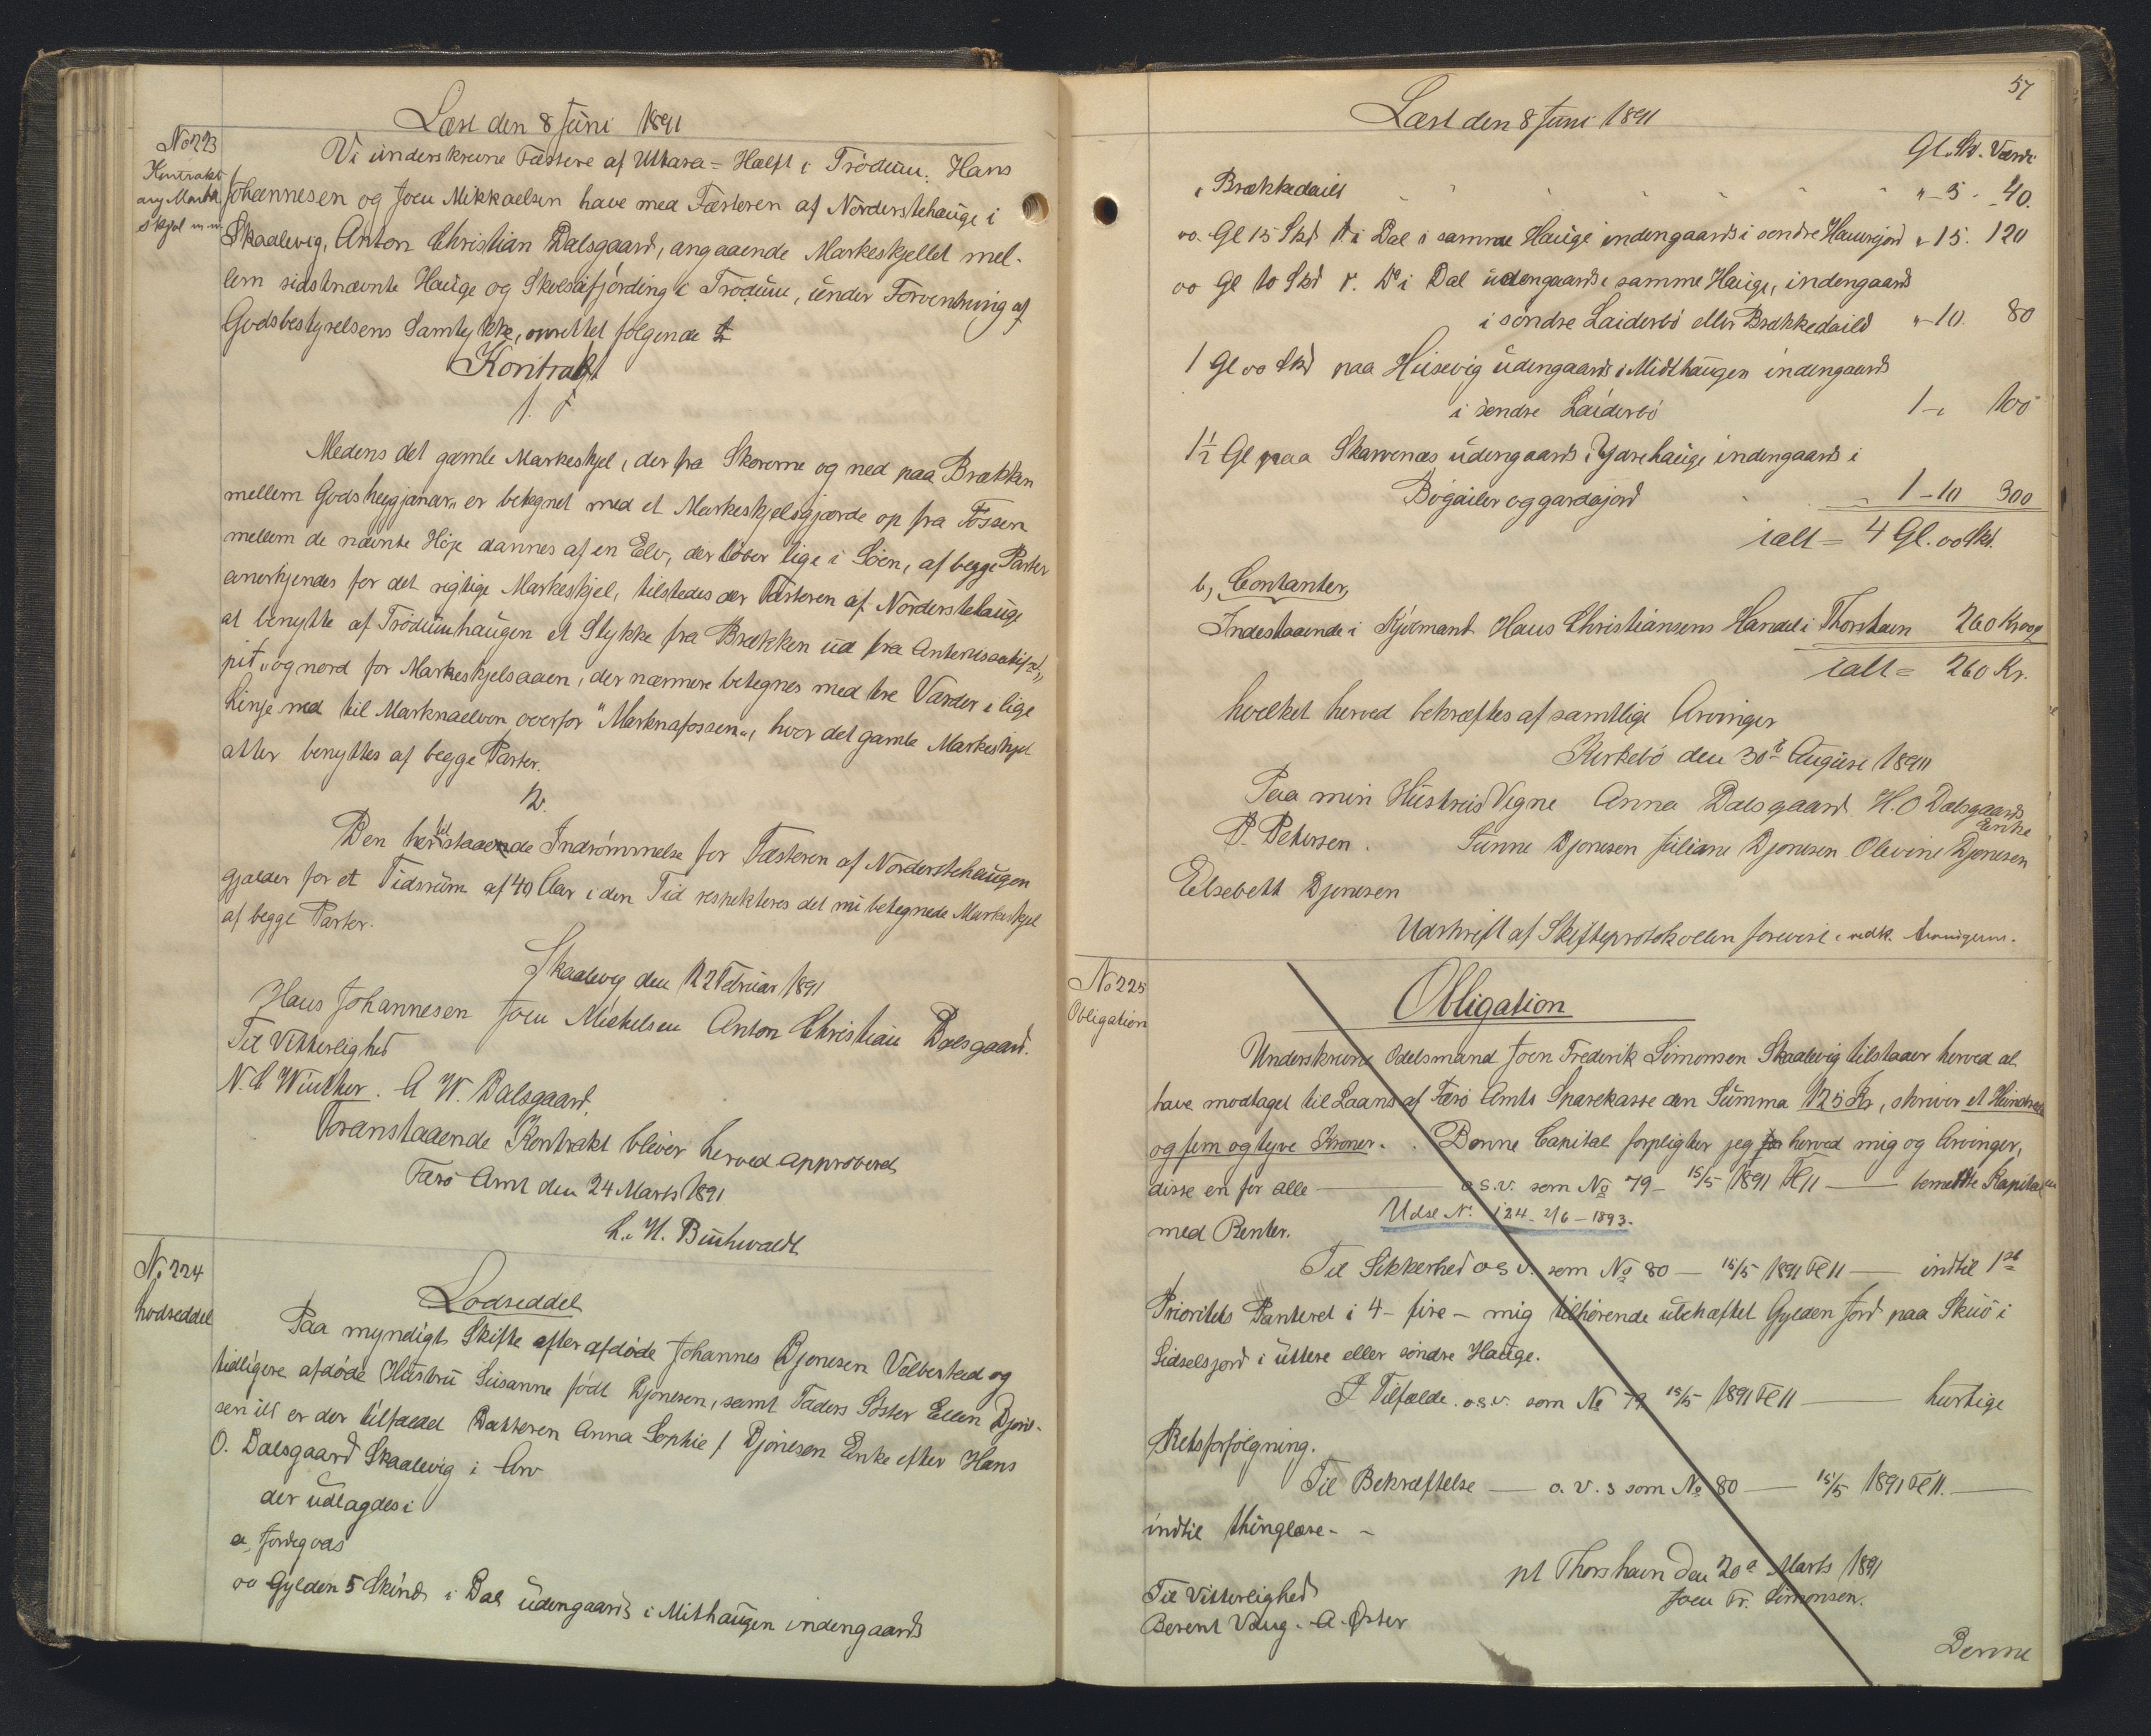 Læst den 8 Juni 1891
No 223
Kontrakt
ang Marke
skjel m.m.
Vi underskrevne Fæstere af Uttara-Hælft i Tródum: Hans
Johannesen og Joen Mikkaelsen have med Fæsteren af Nórderstehauge i
Skaalevig, Anton Christian Dalsgaard, angaaende Markeskjellet mel-
lem sidstnævnte Hauge og Skolsafjórding i Tródum, under Forventning af
Godsbestyrelsens Samtykke, oprettet fólgende
Kontrakt
1.
Medens det gamle Markeskjel, der fra Skorerne og ned paa Brækken
mellem Godsheygjanar" er betegnet med et Markeskjelsgjærde op fra Fossen
mellem de nævnte Hóje dannes af en Elv, der lóber lige i Sóen, af begge Parter
anerkjendes for det rigtige Markeskjel, tilstedes der Fæsteren af Nórderstehauge
at benytte af Tródumhaugen et Stykke fra Brækken ud fra
pit" og nord for Markeskjelsaaen, der nærmere betegnes med tre Varder i lige
Linje ned til Marknaelven overfor "Marknafossen", hvor det gamle Markeskjel
atter benyttes af begge Parter.
2.
Den hertilstaaende Indrómmelse for Fæsteren af Nórderstehaugen
gjælder for et Tidsrum af 40 Aar i den Tid respekteres det nu betegnede Markeskjel
af begge Parter.
Skaalevig den 12 Februar 1891
Hans Johannesen Joen Mickelsen Anton Christian Dalsgaard.
Til Vitterlighed
N. C Winther. A W. Dalsgaard.
Foranstaaende Kontrakt bliver herved approberet
Færó Amt den 24 Marts 1891
C. N. Buchwaldt
No 224
Lodseddel
Lodseddel
Paa myndigt Skifte efter afdóde Johannes Djonesen Velbestad og
tidligere afdóde Hustru Susanne fódt Djonesen, samt Faders Sóster Ellen Djone-
sen ist er der tilfaldet Datteren Anna Sophie f Djónesen Enke efter Hans
O. Dalsgaard Skaalevig i Arv
der udlagdes i
a, Jordegods
oo Gylden 5 Skind i Dal udengaards i Mithaugen indengaards
57
Læst den 8 Juni 1891
Gl. Sk. Værdi
i Brækkedaild " - 5 - 40.
oo. Gl 15 Skd i Dal i samme Hauge indengaards i sondre Hausjord " 15. 120
oo Gl 10 Skd i Dal udengaards i samme Hauge, indengaards
i sóndre Laiderbó eller Brækkedaild " - 10. 80
1 Gl oo Skd paa Husevig udengaards i Midthaugen indengaards
i sóndre Laiderbó 1 - " 100
1½ Gl paa Skarvenæs udengaards i Ydrehauge indengaards i
Bógailer og gardajord 1 - 10 300
ialt = 4 Gl. oo Skd.
b, Contanter,
Indestaaende i Kjóbmand Hans Christiansens Handel i Thorshavn 260 Kr oo
ialt = 260 Kr.
hvilket herved bekræftes af samtlige Arvinger
Kirkebó den 30t August 1891
Paa min Hustrus Vegne Anna Dalsgaard H. O Dalsgaards
Enke
P. Petersen. Sunne Djonesen Juliane Djonesen Olevine Djonesen
Elsebett Djonesen
Udskrift af Skifteprotokollen forevist i vedk.
No 225
Obligation
Obligation
Underskrevne Odelsmand Joen Frederik Simonsen Skaalevig tilstaaer herved at
have modtaget til Laans af Færó Amts Sparekasse den Summa 125 Kr, skriver et Hundrede
og fem og tyve Kroner. Denne Capital forpligter jeg herved mig og Arvinger,
disse en for alle — o.s.v. som No 79 - 15/5 1891 Fl 11 — bemeldte Kapital
med Renter. Udsl. No 124 - 2/6 - 1893.
Til Sikkerhed o s v. som No 80 — 15/5 1891 Fl 11 — indtil 1ste
Prioritets Panteret i 4 - fire - mig tilhórende ubehæftet Gylden Jord paa Skuó i
Sidselsjord i uttere eller sóndre Hauge.
I Tilfælde. o.s.v. som No 79 15/5 1891 Fl 11 — hurtige
Retsforfólgning.
Til Bekræftelse — o. v. s som No 80 — 15/5 1891 Fl 11. —
indtil thinglæse. -
pt Thorshavn den 20de Marts 1891
Joen Fr. Simonsen.
Til Vitterlighed
Berent Vang. A. Øster
Denne